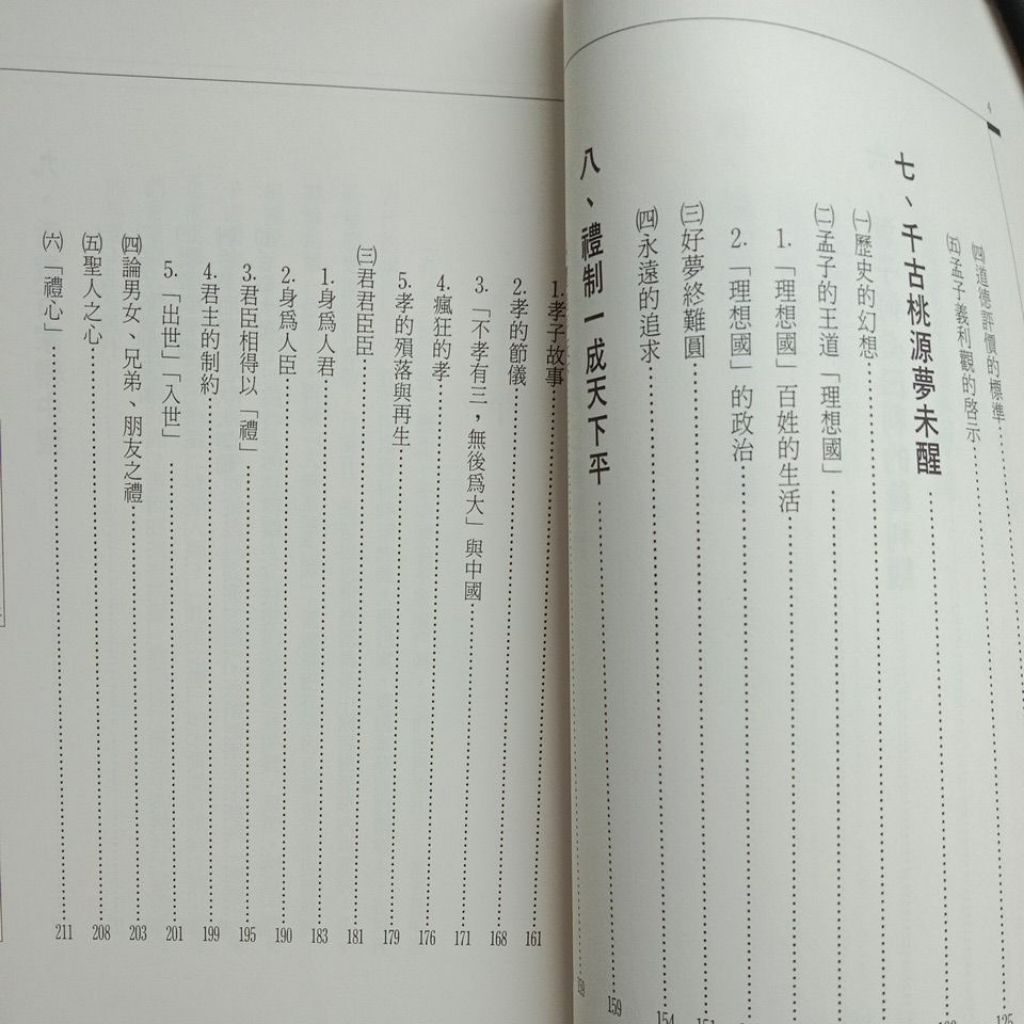 4
㈣道德評價的標準
125
㈤孟子義利觀的啓示
七、千古桃源夢未醒
㈠歷史的幻想
㈡孟子的王道「理想國」
1.「理想國」百姓的生活
2.「理想國」的政治
㈢好夢終難圓
151
㈣永遠的追求
154
八、禮制一成天下平
159
1.孝子故事
161
2.孝的節儀
168
3.「不孝有三,無後爲大」與中國
171
4.瘋狂的孝
176
5.孝的殞落與再生
179
㈢君君臣臣
181
1.身爲人君
183
2.身爲人臣
190
3.君臣相得以「禮」
195
4.君主的制約
199
5.「出世」「入世」
201
㈣論男女、兄弟、朋友之禮
203
㈤聖人之心
208
㈥「禮心」
211